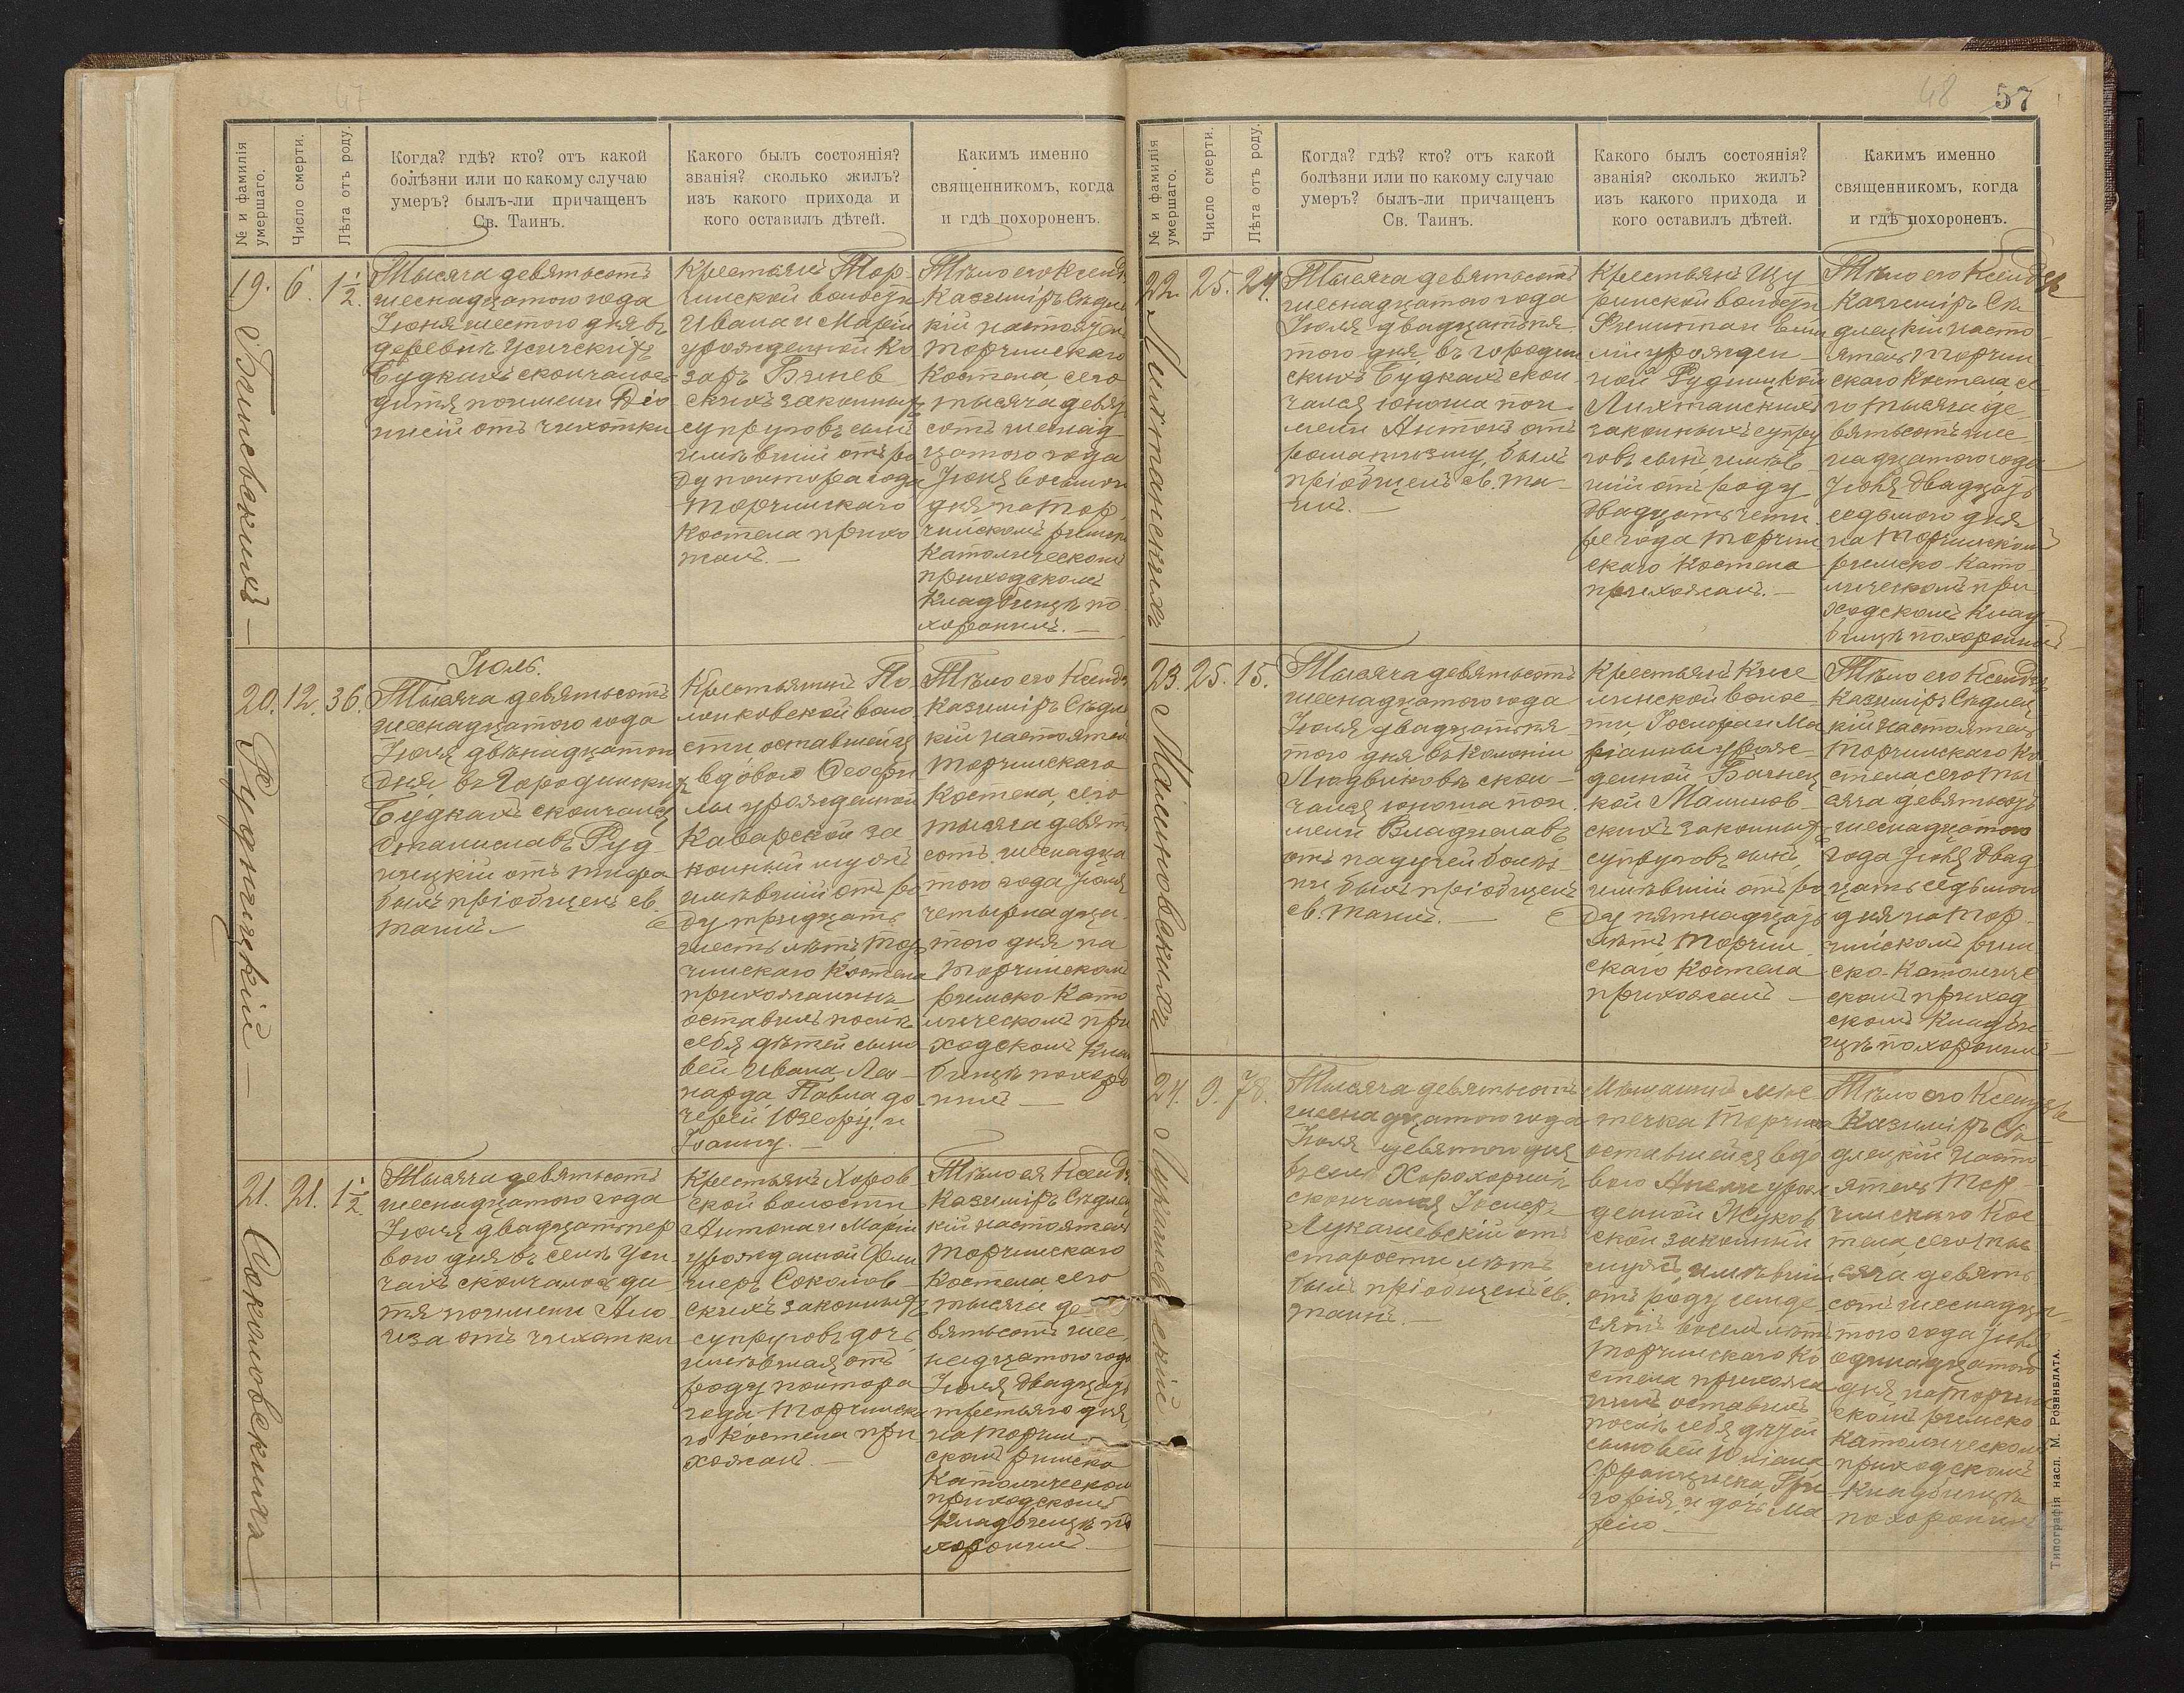 47
№ и фамилія умершаго.
Число смерти.
Лѣта отъ роду.
Когда? гдѣ? кто? отъ какой
болѣзни или по какому случаю
умеръ? былъ-ли причащенъ
Св. Таинъ.
Какого былъ состоянія?
званія? сколько жилъ?
изъ какого прихода и
кого оставилъ дѣтей.
Какимъ именно
священникомъ, когда
и гдѣ похороненъ.
19.
6.
1 1/2.
Тысяча девятьсотъ
шеснадцатого года
Іюня шестого дня въ
деревнѣ Усическихъ
Будкахъ скончалось
дитя по имени Діо
нисій отъ чихотки
Крестьянъ Тор
чинской волости
Ивана и Маріи
урожденной Ко
заръ
скихъ законныхъ
супруговъ сынъ
имѣвшій отъ ро
ду полтора года
Торчинскаго
Костела прихо
жанъ. —
Тѣло его Ксендзъ
Казиміръ Сѣдлец
кій настоятель
Торчинскаго
Костела, сего
тысяча девять
сотъ шеснад
цатого года
Іюня восьмого
дня на Тор
чинскомъ римско
Католическомъ
приходскомъ
Кладбищѣ по
хоронилъ. —
Іюль.
20.
Рудницкій —
12.
36.
Тысяча девятьсотъ
шеснадцатого года
Іюля двѣнадцатого
дня въ Городинскихъ
Будкахъ скончался
Станиславъ Руд
ницкій отъ тифа
былъ пріобщенъ св.
таинъ. —
Крестьянинъ По
лонковской воло
сти оставшейся
вдовою Теофи
лы урожденной
Каварской за
конный мужъ
имѣвшій отъ ро
ду тридцать
шесть лѣтъ Тор
чинскаго Костела
прихожанинъ
оставилъ послѣ
себя дѣтей сыно
вей Ивана Лео
нарда, Павла до
черей Юзефу и
Іоанну. —
Тѣло его Ксендзъ
Казиміръ Сѣдлец
кій настоятель
Торчинскаго
Костела, сего
тысяча девять
сотъ шеснадца
того года Іюля
четырнадца
того дня на
Торчинскомъ
римско-Като
лическомъ при
ходскомъ Клад
бищѣ похоро
нилъ —
21.
Соколовскихъ
21.
1 1/2.
Тысяча девятьсотъ
шеснадцатого года
Іюля двадцатьпер
вого дня въ селѣ Уси
чахъ скончалось ди
тя по имени Ало
иза отъ чихотки
Крестьянъ Хоров
ской волости
Антона и Маріи
урожданной Фли
геръ Соколов
скихъ законныхъ
супруговъ дочь
имѣвшая отъ
роду полтора
года Торчинска
го Костела при
хожанъ. —
Тѣло ея Ксендзъ
Казиміръ Сѣдлец
кій настоятель
Торчинскаго
Костела сего
тысяча де
вятьсотъ шес
надцатого года
Іюля двадцать
третьяго дня
на Торчин
скомъ римско
Католическомъ
приходскомъ
Кладбищѣ по
хоронилъ —
48
57
№ и фамилія умершаго.
Число смерти.
Лѣта отъ роду.
Когда? гдѣ? кто? отъ какой
болѣзни или по какому случаю
умеръ? былъ-ли причащенъ
Св. Таинъ.
Какого былъ состоянія?
званія? сколько жилъ?
изъ какого прихода и
кого оставилъ дѣтей.
Какимъ именно
священникомъ, когда
и гдѣ похороненъ.
22.
Лихтанскихъ
25.
24.
Тысяча девятьсотъ
шеснадцатого года
Іюля двадцатьпя
того дня въ Городин
скихъ Будкахъ скон
чался юноша по и
мени Антонъ отъ
роматизму, былъ
пріобщенъ св. та
инъ. —
Крестьянъ Щу
ринской волости
лiи урожден
ной Рудницкой
Лихтанскихъ
законныхъ супру
говъ сынъ, имѣв
шій отъ роду
двадцать четы
ре года Торчин
скаго Костела
прихожанъ. —
Тѣло его Ксендзъ
Казиміръ Сѣ
длецкій насто
ятель Торчин
скаго Костела се
го тысяча де
вятьсотъ шес
надцатого года
Іюля двадцать
седьмого дня
на Торчинскомъ
римско-Като
лическомъ при
ходскомъ Клад
бищѣ похоронилъ
23.
Малиновскихъ
25.
15.
Тысяча девятьсотъ
шеснадцатого года
Іюля двадцатьпя
того дня въ Колоніи
Людвиковъ скон
чался юноша по и
мени Владиславъ
отъ падучей болѣз
ни былъ пріобщенъ
св. таинъ. —
Крестьянъ Кисе
линской волос
ти, Іосифа и Ма
ріанны урож
денной
кой Малинов
скихъ законныхъ
супруговъ сынъ,
имѣвшій отъ ро
ду пятнадцать
лѣтъ Торчин
скаго Костела
прихожанъ —
Тѣло его Ксендзъ
Казиміръ Сѣдлец
кій настоятель
Торчинскаго Ко
стела сего ты
сяча девятьсотъ
шеснадцатого
года Іюля двад
цать седьмого
дня на Тор
чинскомъ рим
ско-Католиче
скомъ приход
скомъ Кладби
щѣ похоронилъ —
24.
Лукашевскій
9.
78.
Тысяча девятьсотъ
шеснадцатого года
Іюля девятого дня
въ селѣ Хорохоринѣ
скончался Іосифъ
Лукашевскій отъ
старости лѣтъ
былъ пріобщенъ св.
таинъ. —
Мѣщанинъ мѣс
течка Торчина
оставшейся вдо
вою Анели урож
денной Жуков
ской законный
мужъ, имѣвшій
отъ роду семде
сятъ восемь лѣтъ
Торчинскаго Ко
стела прихожа
нинъ оставилъ
послѣ себя дѣтей
сыновей Юліана
Францишка, Гри
горія и дочь Ма
рію —
Тѣло его Ксендзъ
Казиміръ Сѣ
длецкій насто
ятель Тор
чинскаго Кос
тела, сего ты
сяча девять
сотъ шеснадца
того года Іюля
одинадцатого
дня на Торчин
скомъ римско
Католическомъ
приходскомъ
Кладбищѣ
похоронилъ
Типографія насл. М. Розенблата.